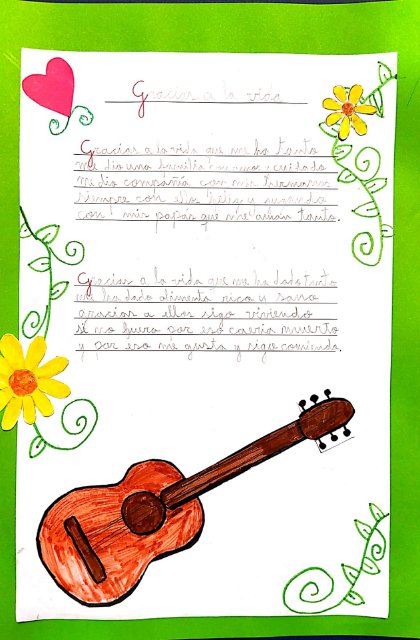 Gracias a la vida
Gracias a la vida que me ha tanto
me dio una familia con amor y cuidado
me dio compañía con mis hermanos
siempre con ellos feliz y jugando
con mis papás que me aman tanto.
Gracias a la vida que me ha dado tanto
me ha dado alimento rico y sano
gracias a ellos sigo viviendo
si no fuera por eso caería muerto
y por eso me gusta y sigo comiendo.